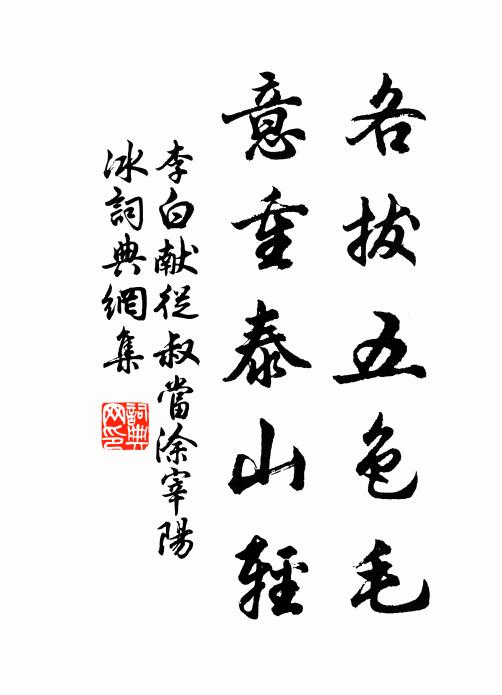 各拔五色毛
意重泰山輕
李白献從叔當涂宰陽
冰詞典網集
詞典
网印